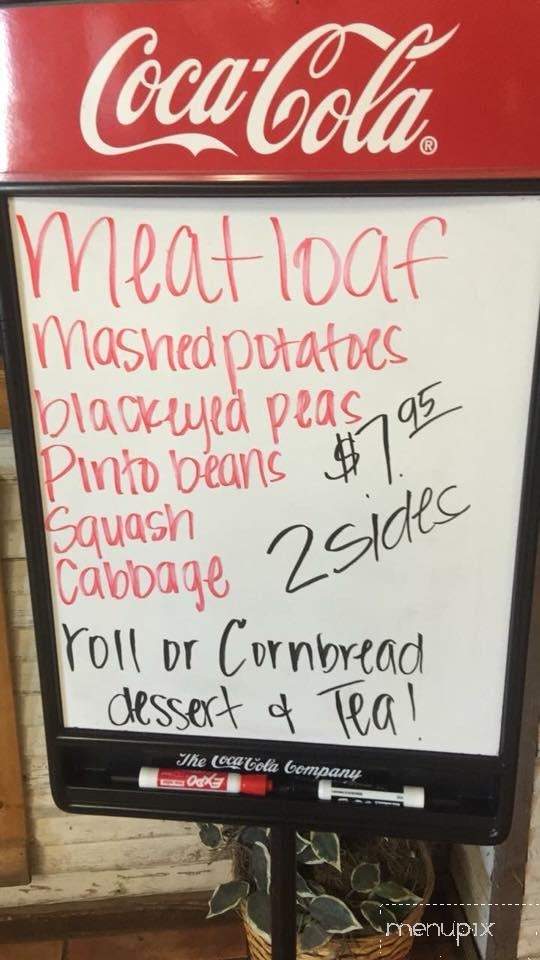 Coca-Cola®
Meatloaf
Mashed potatoes
blackeyed peas
Pinto beans
$7.95
Squash
2 sides
Cabbage
roll or Cornbread
dessert & Tea!
The Coca-Cola Company
EXPO
menupix